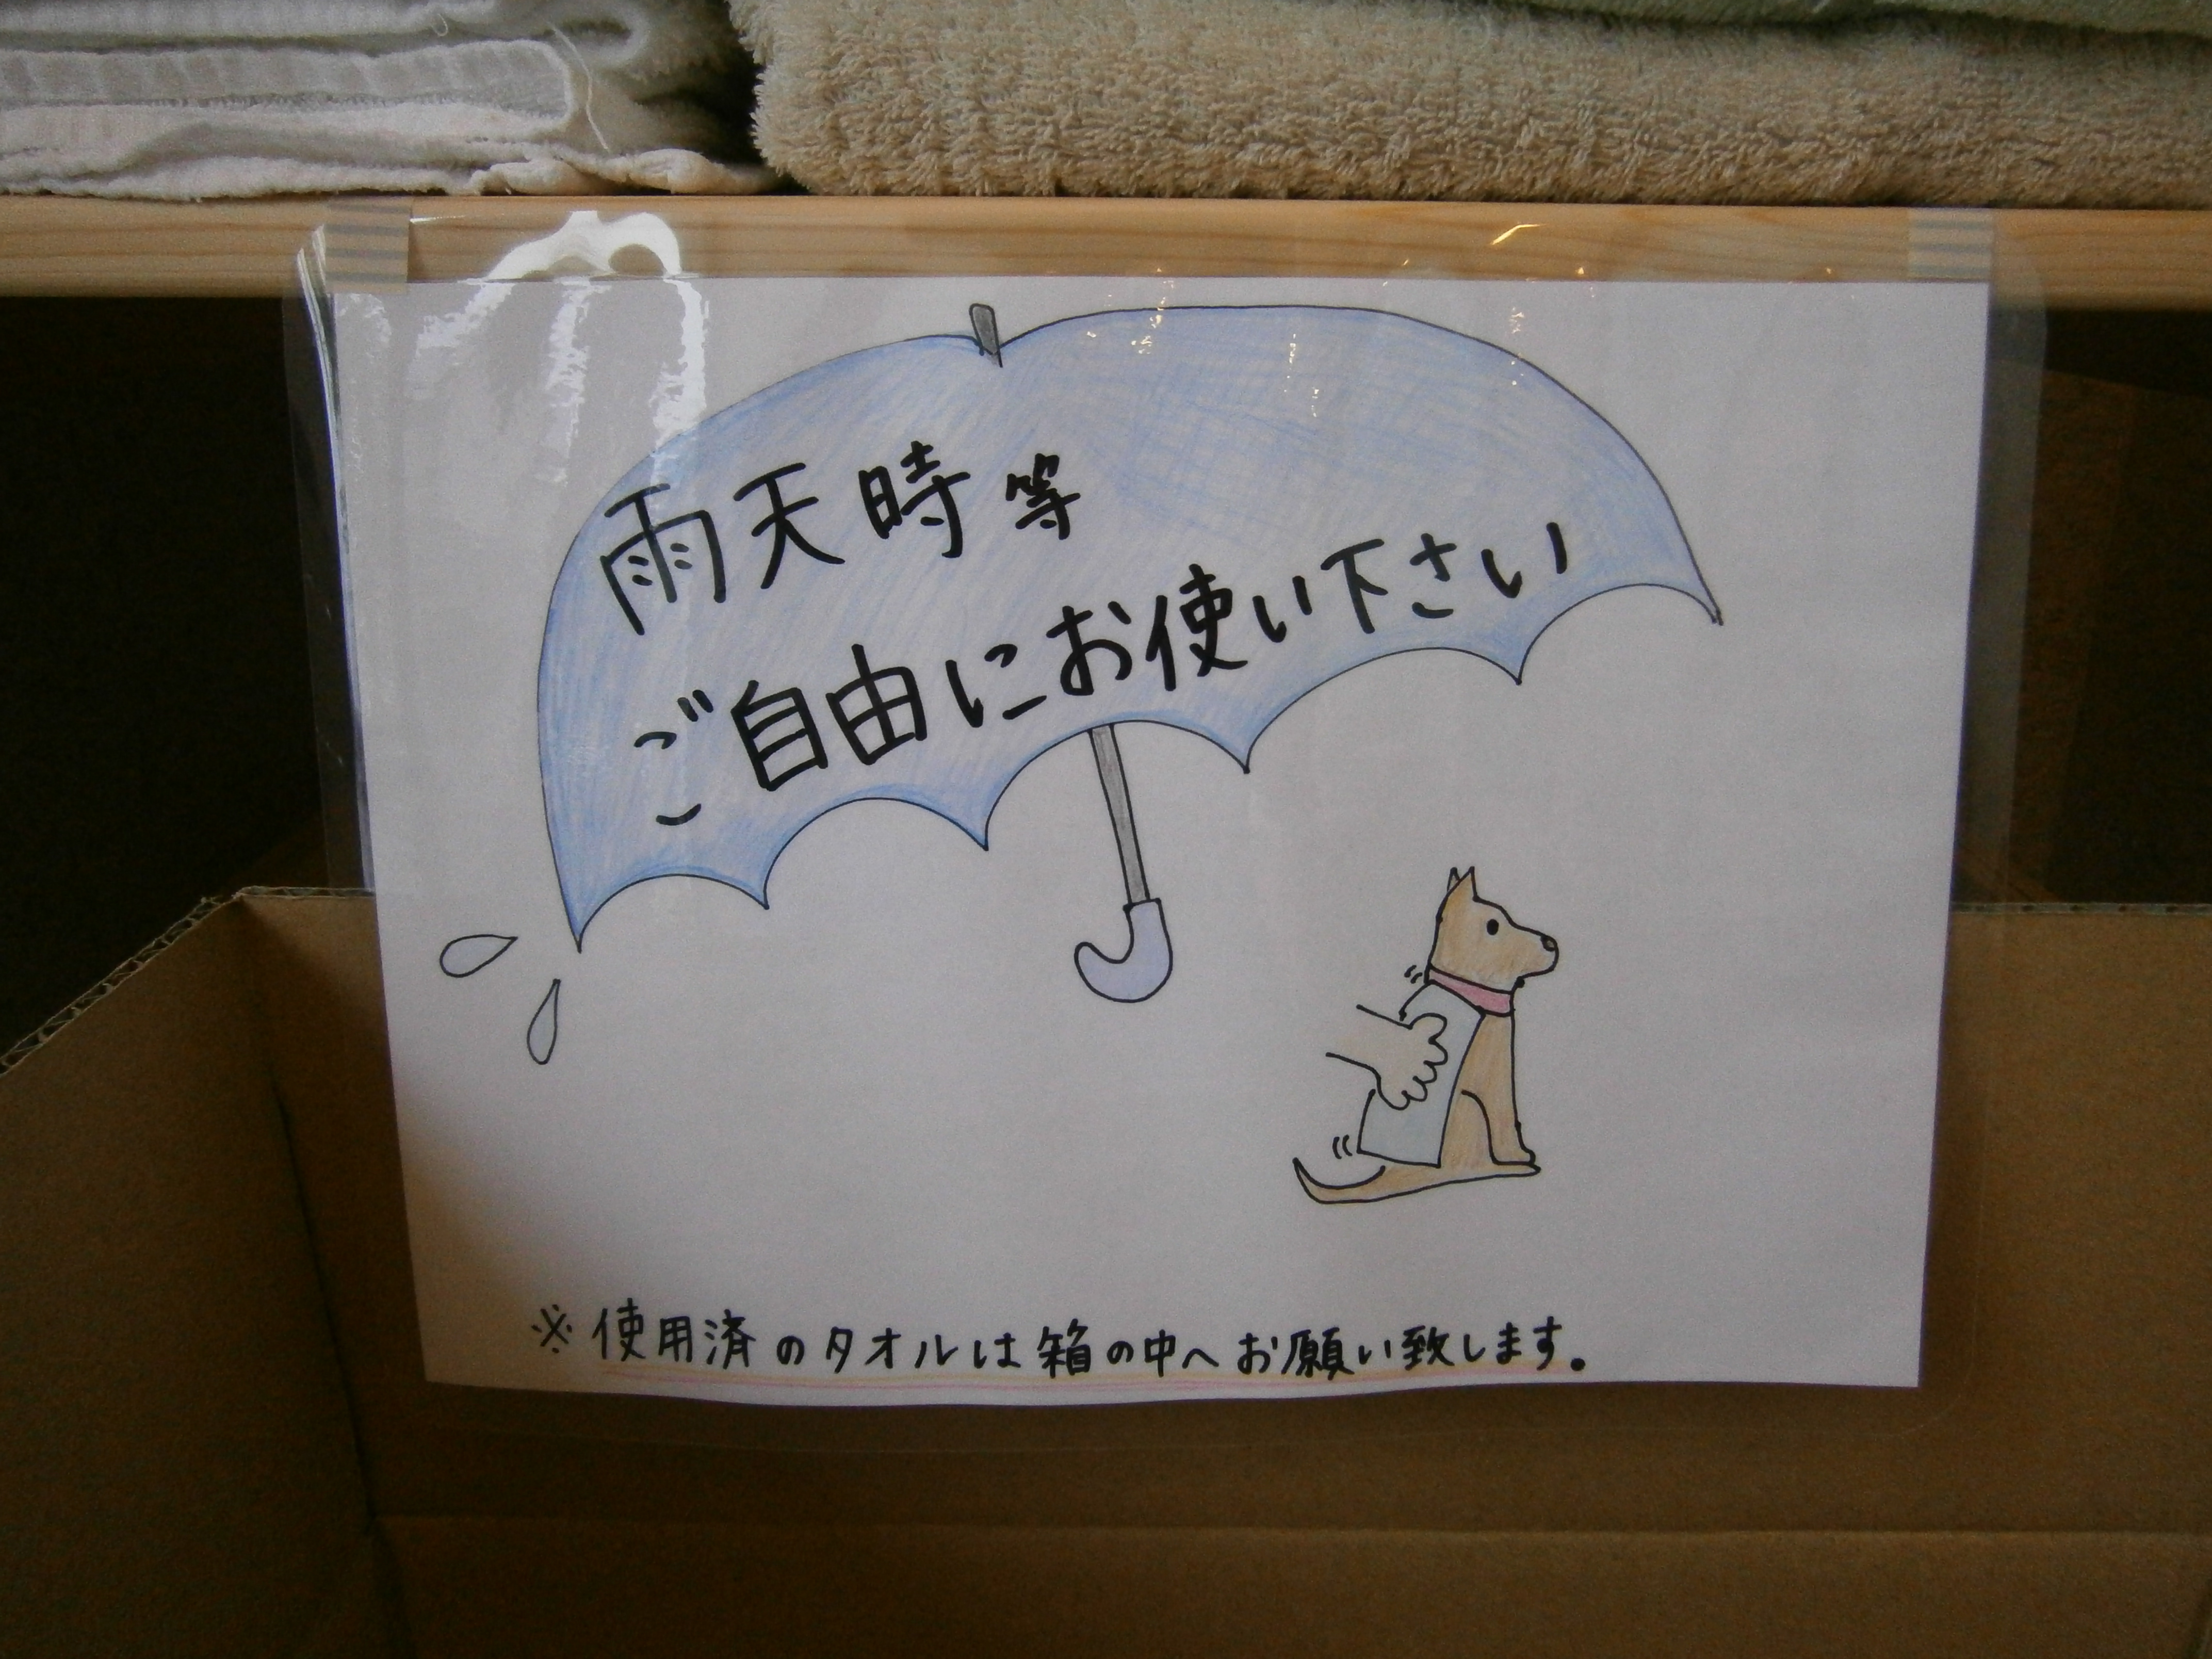 雨天時等
ご自由にお使い下さい
※使用済のタオルは箱の中へお願い致します。